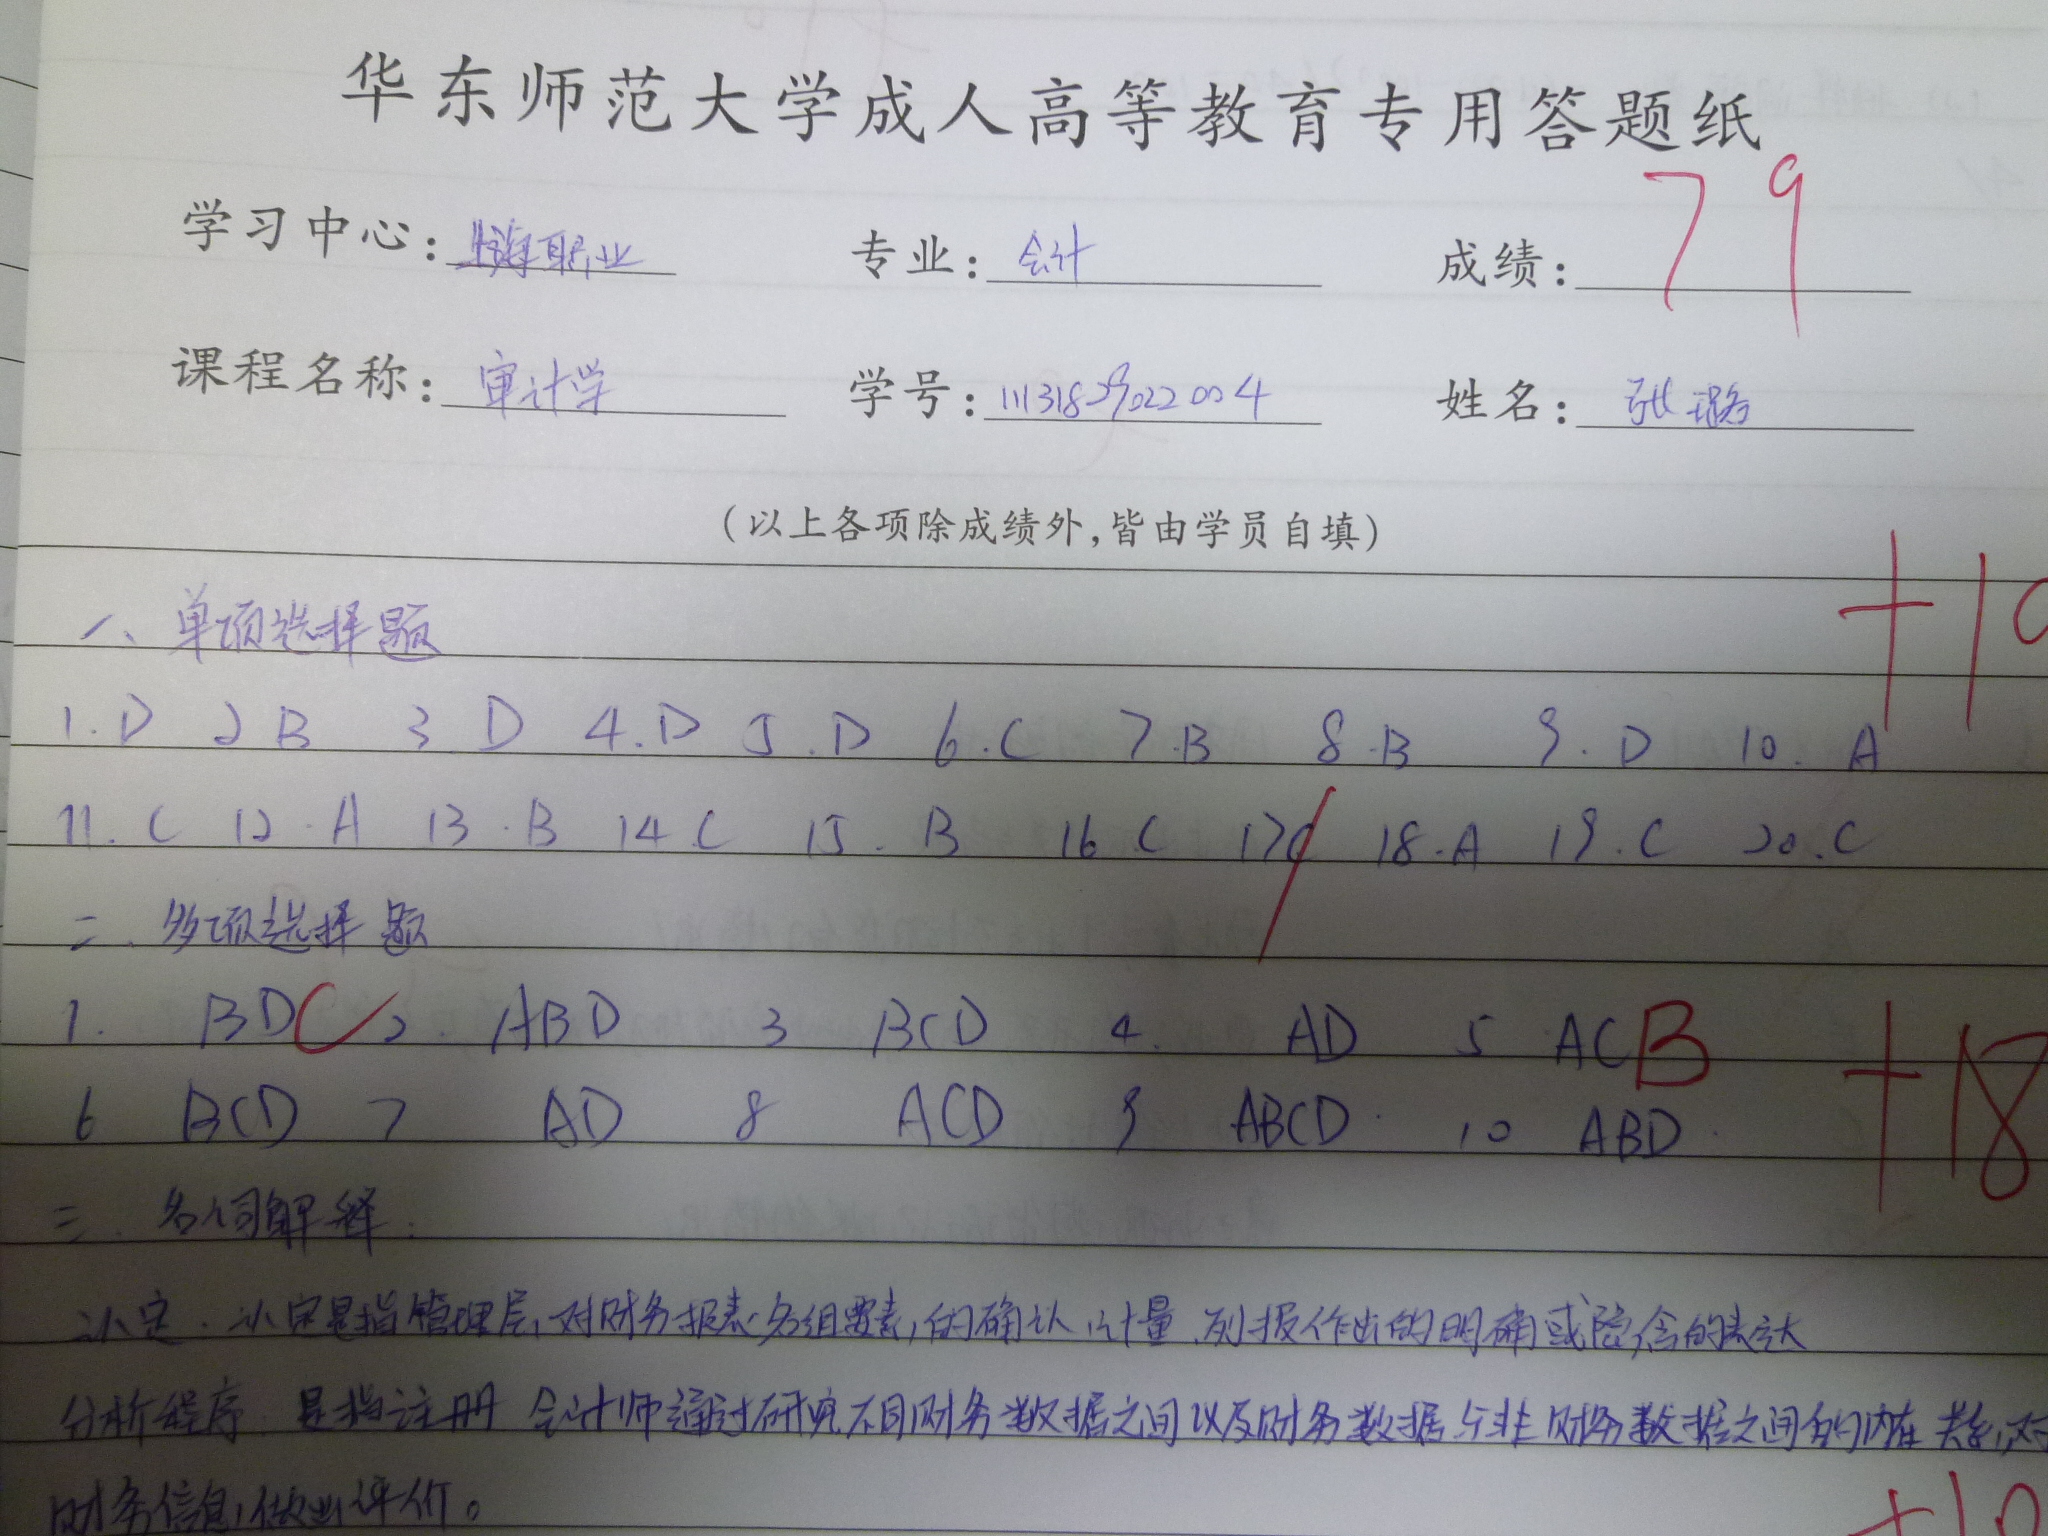 华东师范大学成人高等教育专用答题纸
学习中心：上海职业 专业：会计 成绩：79
课程名称：审计学 学号：11131829022004 姓名：张璐
（以上各项除成绩外，皆由学员自填）
一、单项选择题 +19
1.D 2 B 3 D 4.D 5.D 6.C 7.B 8.B 9.D 10.A
11.C 12.A 13.B 14 C 15.B 16 C 17C 18.A 19.C 20.C
二、多项选择题
1. BDC 2. ABD 3 BCD 4. AD 5 ACB +18
6 BCD 7 AD 8 ACD 9 ABCD 10 ABD
三、名词解释：
认定：认定是指管理层对财务报表各组要素的确认、计量、列报作出的明确或隐含的表达
分析程序：是指注册会计师通过研究不同财务数据之间以及财务数据与非财务数据之间的内在关系，对
财务信息做出评价。 +10